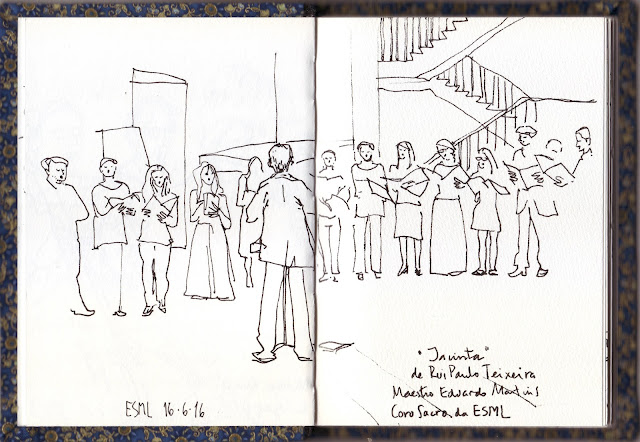 ESML 16·6·16
"Jacinta"
de Rui Paulo Teixeira
Maestro Eduardo Martins
Coro Sacra da ESML